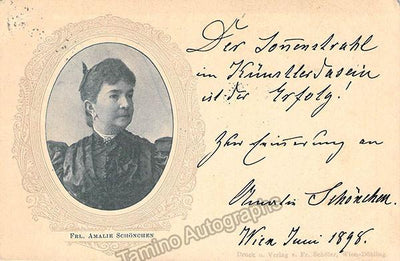 Der Sonnenstrahl
im Künstlerdasein
ist der Erfolg!
Zur Erinnerung an
Amalie Schönchen.
Wien Juni 1898.
Frl. Amalie Schönchen
Druck u. Verlag v. Fr. Schöler, Wien-Döbling.
Tamino Autographs